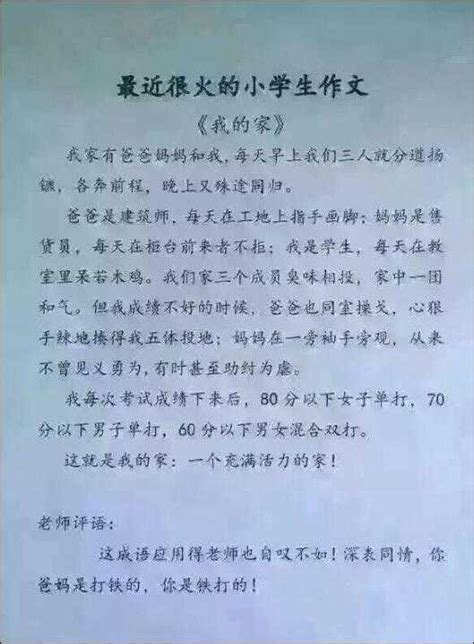 最近很火的小学生作文
《我的家》
我家有爸爸妈妈和我，每天早上我们三人就分道扬
镳，各奔前程，晚上又殊途同归。
爸爸是建筑师，每天在工地上指手画脚；妈妈是售
货员，每天在柜台前来者不拒；我是学生，每天在教
室里呆若木鸡。我们家三个成员臭味相投，家中一团
和气。但我成绩不好的时候，爸爸也同室操戈，心狠
手辣地揍得我五体投地；妈妈在一旁袖手旁观，从来
不曾见义勇为，有时甚至助纣为虐。
我每次考试成绩下来后，80 分以下女子单打，70
分以下男子单打，60 分以下男女混合双打。
这就是我的家：一个充满活力的家！
老师评语：
这成语应用得老师也自叹不如！深表同情，你
爸妈是打铁的，你是铁打的！